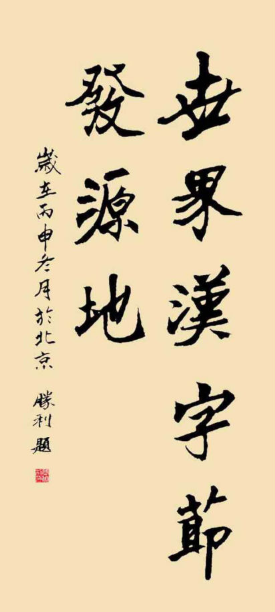 世界漢字節
發源地
歲在丙申冬月於北京 勝利題